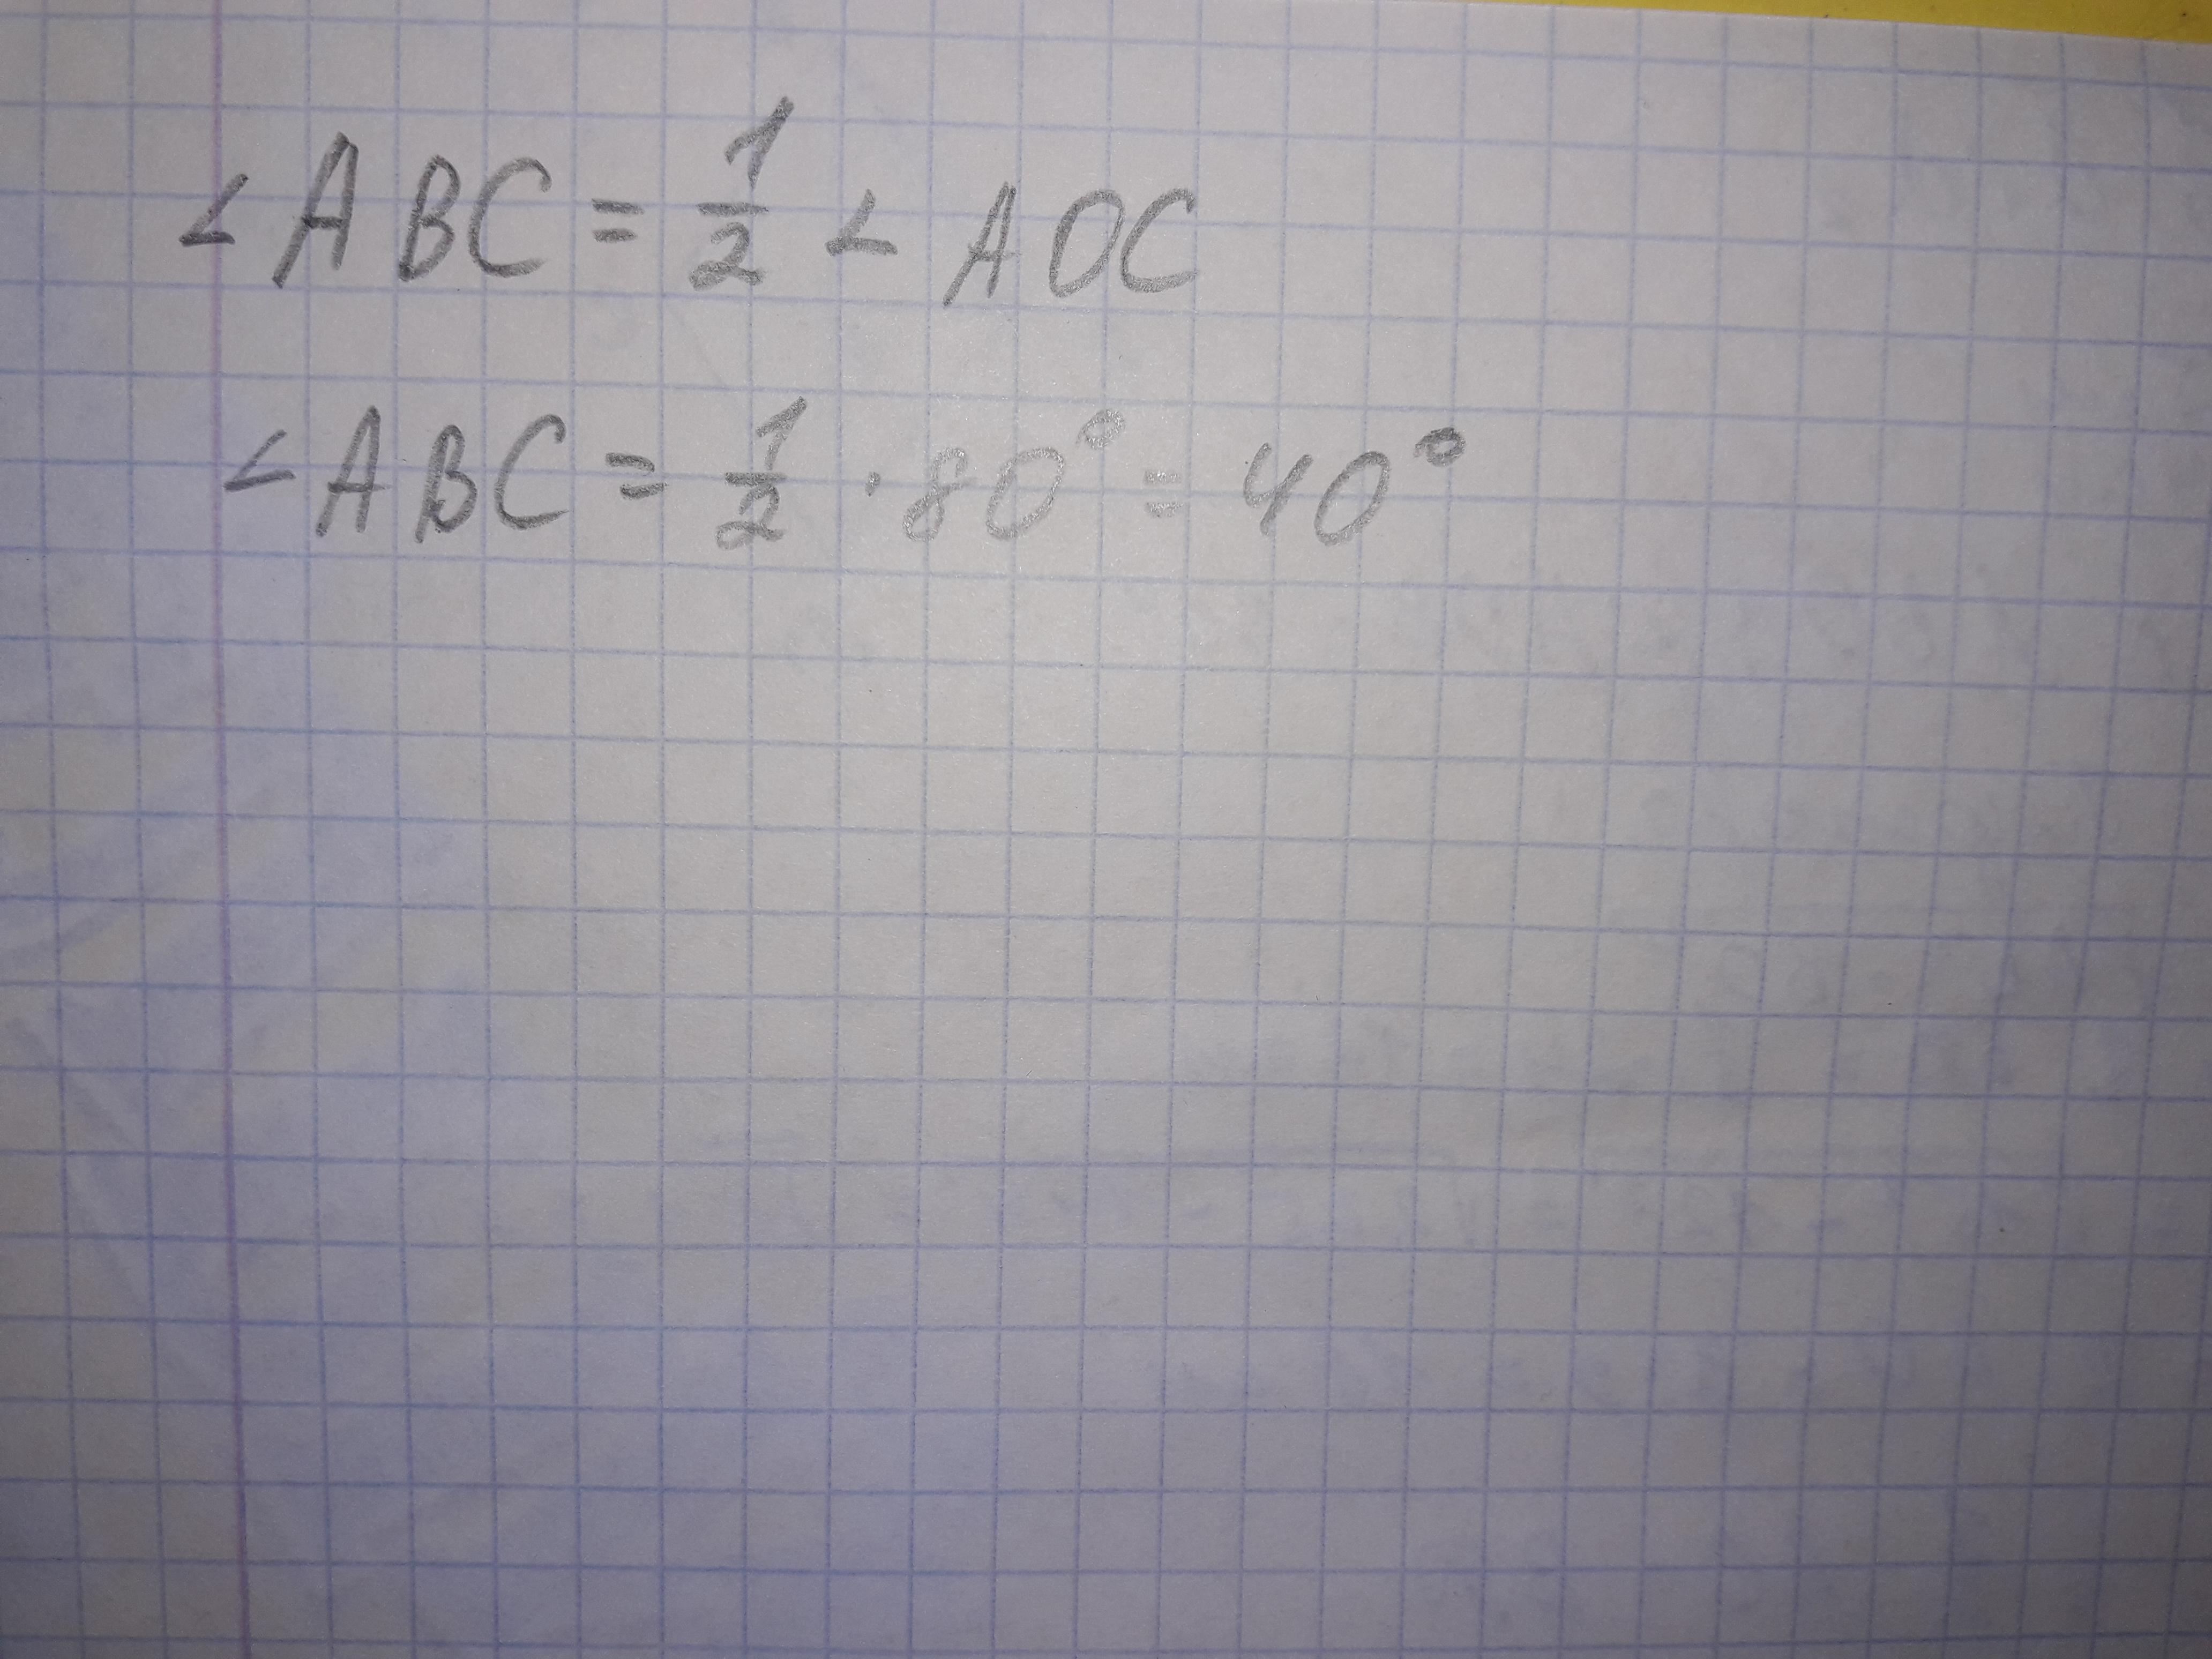 ∠ABC = 1/2 ∠AOC
∠ABC = 1/2 · 80° = 40°